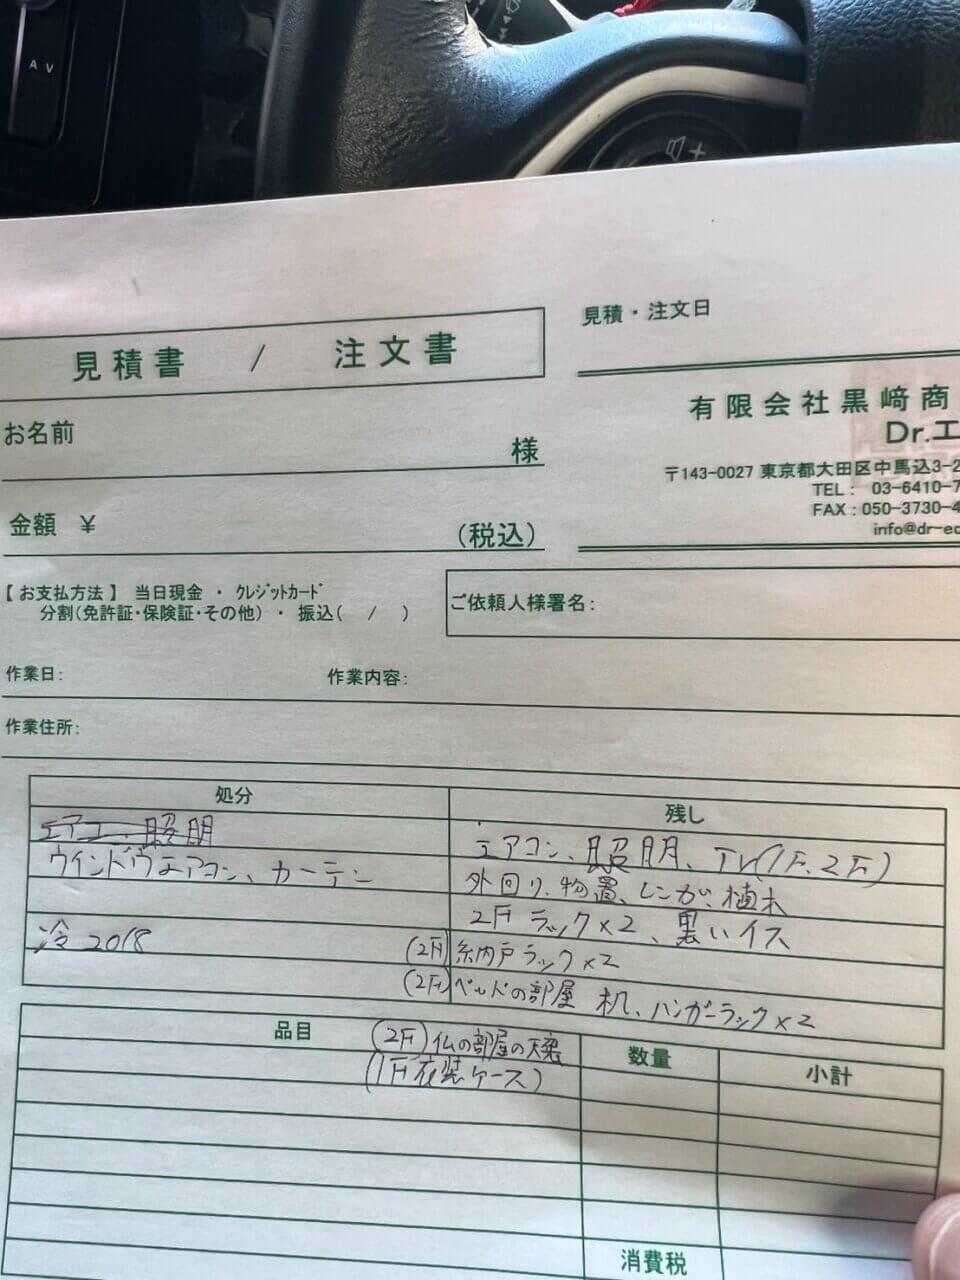 AV
見積書 / 注文書
見積・注文日
有限会社黒﨑商
Dr.エ
〒143-0027 東京都大田区中馬込3-2
TEL : 03-6410-7
FAX : 050-3730-4
info@dr-ec
お名前 様
金額 ¥ (税込)
【お支払方法】 当日現金 ・ クレジットカード
分割(免許証・保険証・その他) ・ 振込( / )
ご依頼人様署名:
作業日: 作業内容:
作業住所:
処分 残し
エアコン、照明
ウインドウエアコン、カーテン
冷 2018
エアコン、照明、TV(1F、2F)
外回り、物置、レンガ、植木
2F ラック×2、黒いイス
(2F) 納戸ラック×2
(2F) ベッドの部屋 机、ハンガーラック×2
品目 数量 小計
(2F) 仏の部屋の
(1F 衣装ケース)
消費税